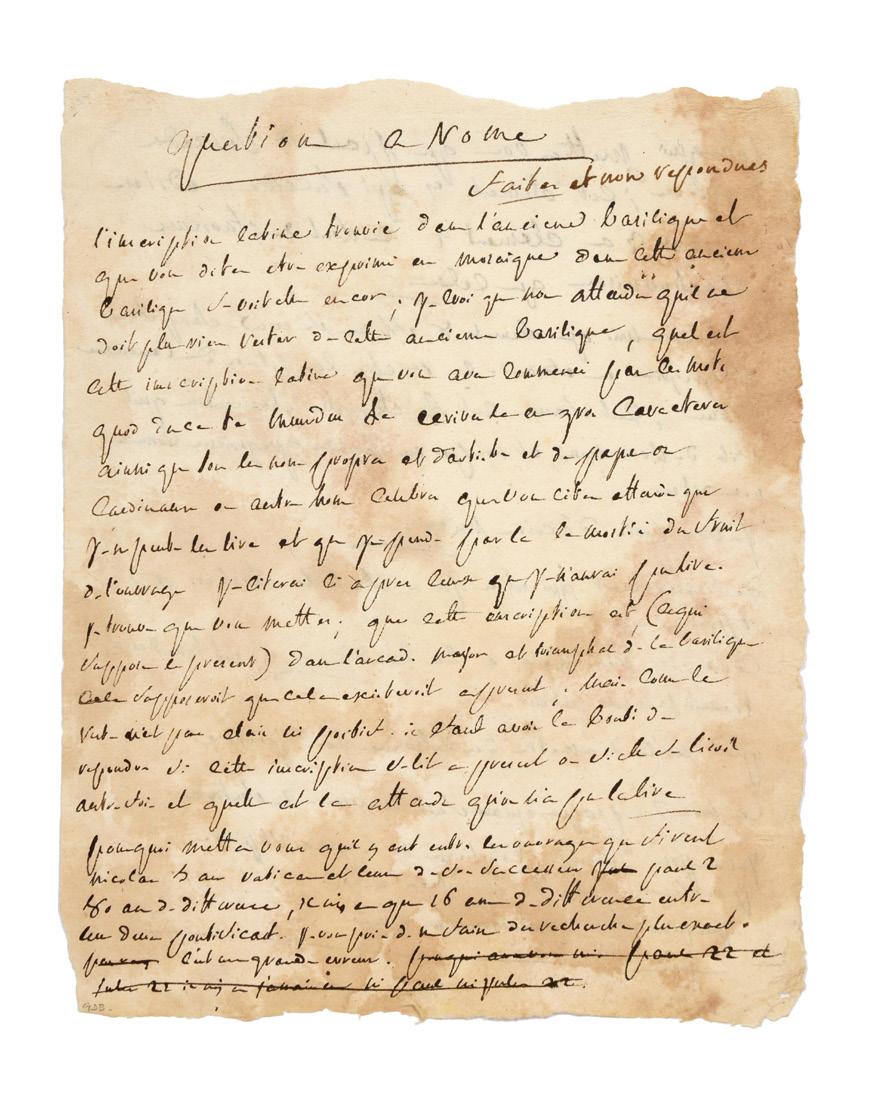 question a Rome
faites et non respondues
l'inscription latine trouvée dans l'ancienne basilique et
que vous dites etre exprimé en mosaique dans cette ancienne
basilique se voit elle encor, je croi que non attendu qu'il ne
doit plus rien rester de cette ancienne basilique, quel est
cette inscription latine que vous avez commencé par les mots
quod duce te mundus écrivez la en gros caracteres
ainsi que tous les noms propres et d'artiste et de papes ou
cardinaux ou autre hom celebre que vous citez attendu que
je n'e peut les lire et que je perds par la la moitié du fruit
de l'ouvrage je citerai ci apres ceux que je n'aurai pu lire.
je trouve que vous mettez, que cette inscription est (ce qui
suppose le present) dans l'arcade major et triumphal de la basilique
cela supposeroit que cela existeroit a present, mais comme le
reste n'est pas clair ni positif. il faut avoir la bonté de
respondre si cette inscription se lit a present ou si elle se lisoit
autre fois et quelle est la attendu qu'on n'a pu la lire
pourquoi mettez vous qu'il y eut entre les ouvrages que firent
nicolas 5 au vatican et ceux de son successeur paul 2
80 ans de difference, il n'y en a que 16 ans de difference entre
les deux pontificat. je vous prie de m'en faire des recherches plus exactes.
c'est une grande erreur. paul 22 et
jules 22 il n'y a jamais eu ni paul ni jules 22.
GDB